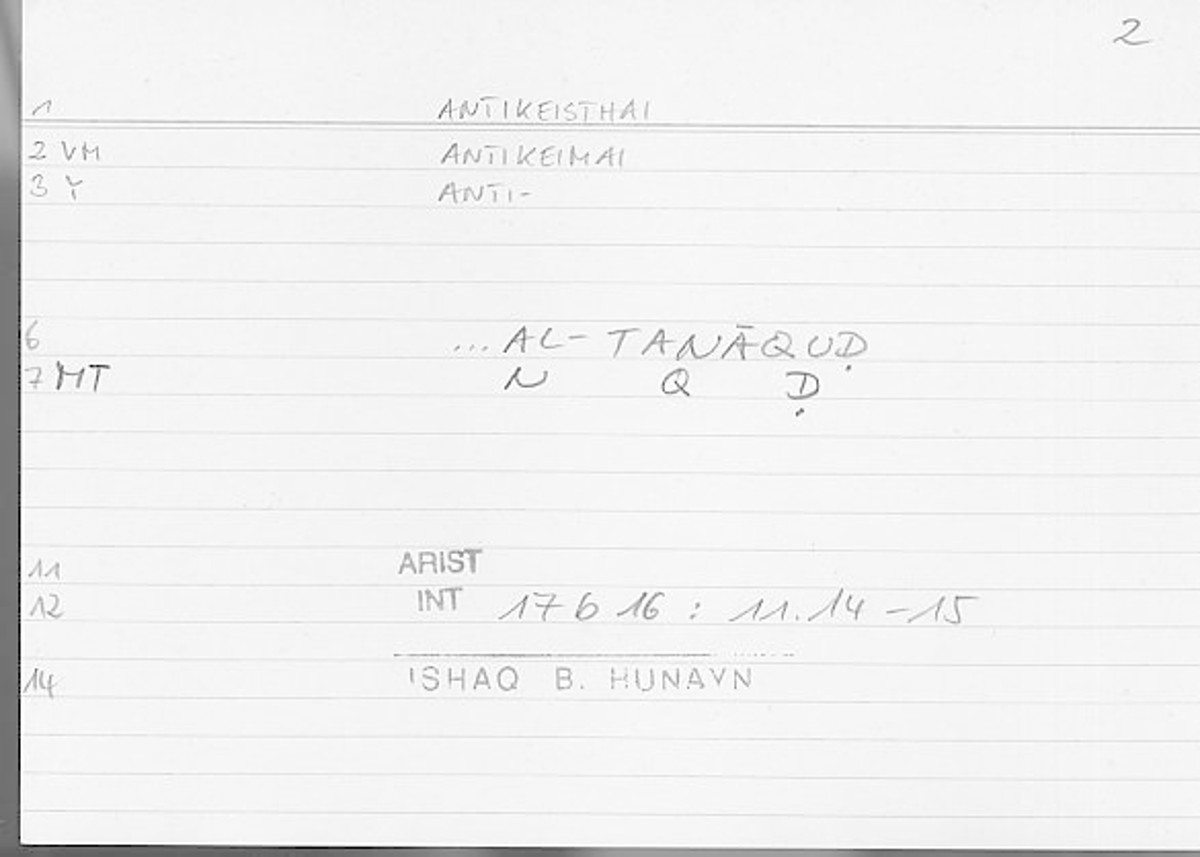 2
1 ANTIKEISTHAI
2 VM ANTIKEIMAI
3 Y ANTI-
6 ...AL-TANĀQUḌ
7 MT N Q Ḍ
11 ARIST
12 INT 17 b 16 : 11.14 - 15
14 ISHAQ B. HUNAYN